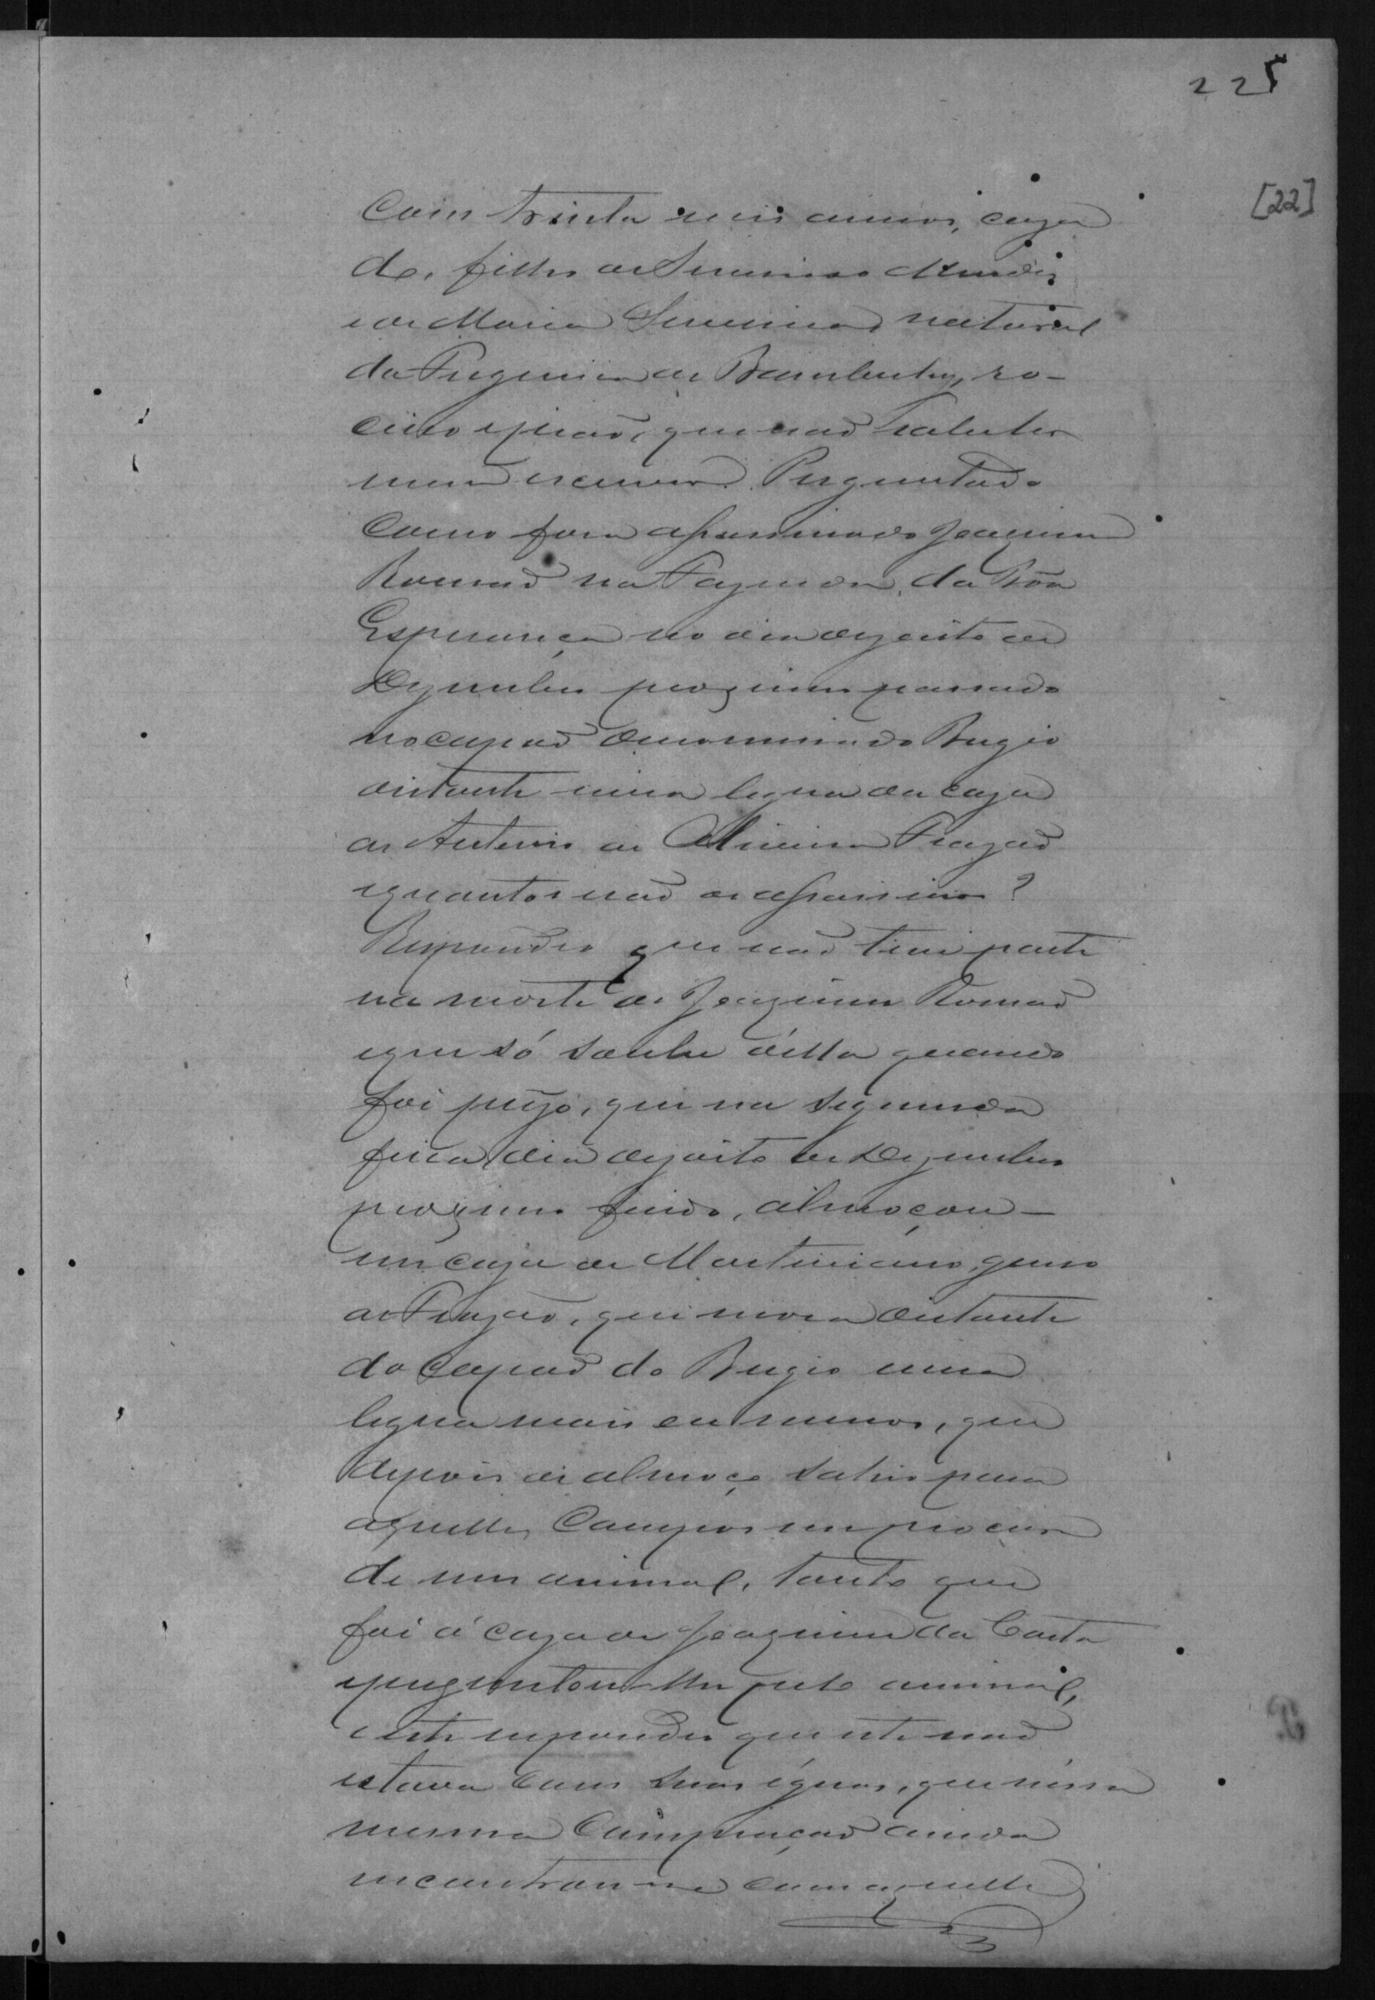 225
[22]
Com trinta seis annos, caza
do, filho de Severino Mendes
e de Maria Severina, natural
da Freguesia de Bambuhy, ro-
ceiro e pião, que não sabe ler
nem escrever. Perguntado
Como fora assassinado Joaquim
Romão na Fazenda da Bôa
Esperança no dia dezoito de
Dezembro proximo passado
no capão denominado Bugio
distante uma legua da caza
de Antonio de Oliveira Frazão
e quantos são os assassinos?
Respondeo que não teve parte
na morte de Joaquim Romão
e que só soube della quando
foi prezo, que na segunda
feira dia dezoito de Dezembro
proximo findo, almoçou
em caza de Martiniano, genro
de Frazão, que mora distante
do Capão do Bugio uma
legua mais ou menos, que
depois de almoço sahio para
aquelles Campos em procura
de um animal, tanto que
foi á caza de Joaquim da Costa
e perguntou-lhe pelo animal,
e este respondeo que este não
estava com suas éguas, que nessa
mesma Campeação ainda
encontrou-se com aquelle